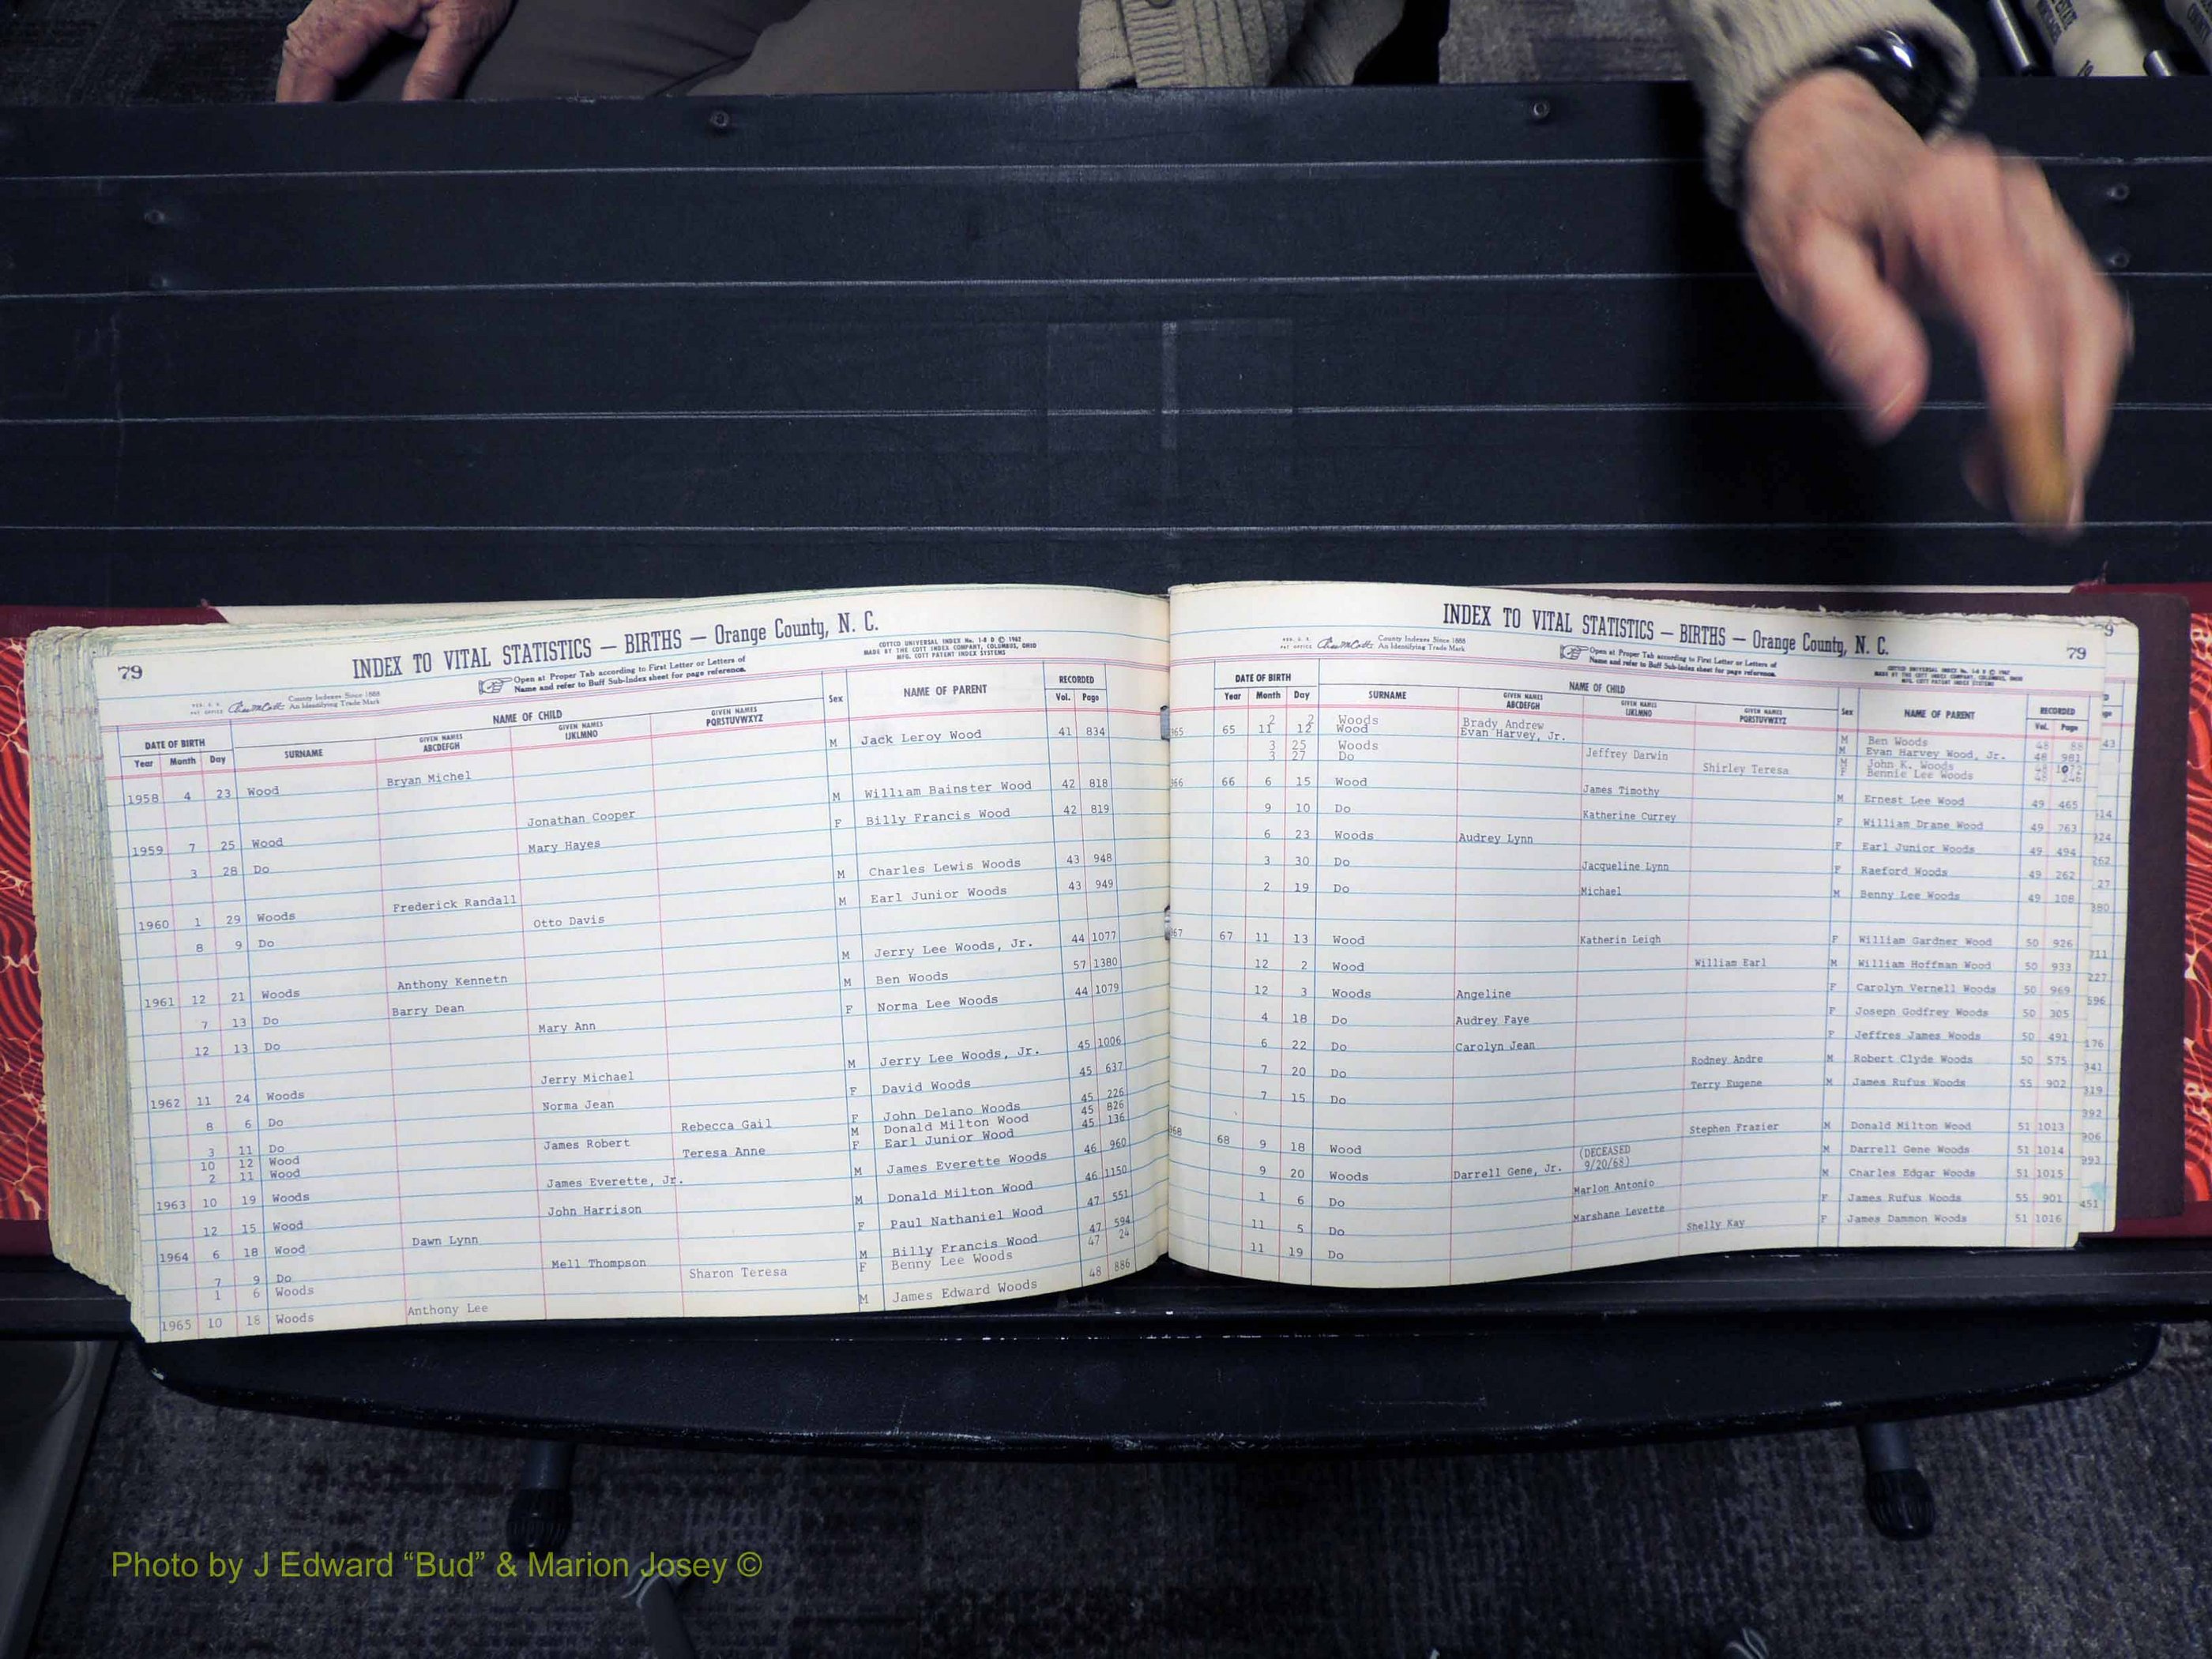 79
INDEX TO VITAL STATISTICS — BIRTHS — Orange County, N. C.
COTTCO UNIVERSAL INDEX No. 1-8 D © 1962
MADE BY THE COTT INDEX COMPANY, COLUMBUS, OHIO
MFG. COTT PATENT INDEX SYSTEMS
County Indexes Since 1888
An Identifying Trade Mark
Open at Proper Tab according to First Letter or Letters of
Name and refer to Buff Sub-Index sheet for page reference.
DATE OF BIRTH NAME OF CHILD Sex NAME OF PARENT RECORDED
Year Month Day SURNAME GIVEN NAMES ABCDEFGH GIVEN NAMES IJKLMNO GIVEN NAMES PQRSTUVWXYZ Vol. Page
1958 4 23 Wood Bryan Michel M Jack Leroy Wood 41 834
1959 7 25 Wood Jonathan Cooper M William Bainster Wood 42 818
3 28 Do Mary Hayes F Billy Francis Wood 42 819
1960 1 29 Woods Frederick Randall M Charles Lewis Woods 43 948
8 9 Do Otto Davis M Earl Junior Woods 43 949
1961 12 21 Woods Anthony Kennetn M Jerry Lee Woods, Jr. 44 1077
7 13 Do Barry Dean M Ben Woods 57 1380
12 13 Do Mary Ann F Norma Lee Woods 44 1079
1962 11 24 Woods Jerry Michael M Jerry Lee Woods, Jr. 45 1006
8 6 Do Norma Jean F David Woods 45 637
3 11 Do Rebecca Gail F John Delano Woods 45 226
10 12 Wood James Robert M Donald Milton Wood 45 826
2 11 Wood Teresa Anne F Earl Junior Wood 45 136
1963 10 19 Woods James Everette, Jr. M James Everette Woods 46 960
12 15 Wood John Harrison M Donald Milton Wood 46 1150
1964 6 18 Wood Dawn Lynn F Paul Nathaniel Wood 47 551
7 9 Do Mell Thompson M Billy Francis Wood 47 594
1 6 Woods Sharon Teresa F Benny Lee Woods 47 24
1965 10 18 Woods Anthony Lee M James Edward Woods 48 886
INDEX TO VITAL STATISTICS — BIRTHS — Orange County, N. C.
79
County Indexes Since 1888
An Identifying Trade Mark
Open at Proper Tab according to First Letter or Letters of
Name and refer to Buff Sub-Index sheet for page reference.
DATE OF BIRTH NAME OF CHILD Sex NAME OF PARENT RECORDED
Year Month Day SURNAME GIVEN NAMES ABCDEFGH GIVEN NAMES IJKLMNO GIVEN NAMES PQRSTUVWXYZ Vol. Page
2 2 Woods Brady Andrew M Ben Woods 48 88
65 11 12 Wood Evan Harvey, Jr. M Evan Harvey Wood, Jr. 48 981
3 25 Woods Jeffrey Darwin M John K. Woods
3 27 Do Shirley Teresa F Bennie Lee Woods 48 246
66 6 15 Wood James Timothy M Ernest Lee Wood 49 465
9 10 Do Katherine Currey F William Drane Wood 49 763
6 23 Woods Audrey Lynn F Earl Junior Woods 49 494
3 30 Do Jacqueline Lynn F Raeford Woods 49 262
2 19 Do Michael M Benny Lee Woods 49 108
67 11 13 Wood Katherin Leigh F William Gardner Wood 50 926
12 2 Wood William Earl M William Hoffman Wood 50 933
12 3 Woods Angeline F Carolyn Vernell Woods 50 969
4 18 Do Audrey Faye F Joseph Godfrey Woods 50 305
6 22 Do Carolyn Jean F Jeffres James Woods 50 491
7 20 Do Rodney Andre M Robert Clyde Woods 50 575
7 15 Do Terry Eugene M James Rufus Woods 55 902
68 9 18 Wood Stephen Frazier M Donald Milton Wood 51 1013
9 20 Woods Darrell Gene, Jr. (DECEASED 9/20/68) M Darrell Gene Woods 51 1014
1 6 Do Marlon Antonio M Charles Edgar Woods 51 1015
11 5 Do Marshane Levette F James Rufus Woods 55 901
11 19 Do Shelly Kay F James Dammon Woods 51 1016
Photo by J Edward “Bud” & Marion Josey ©